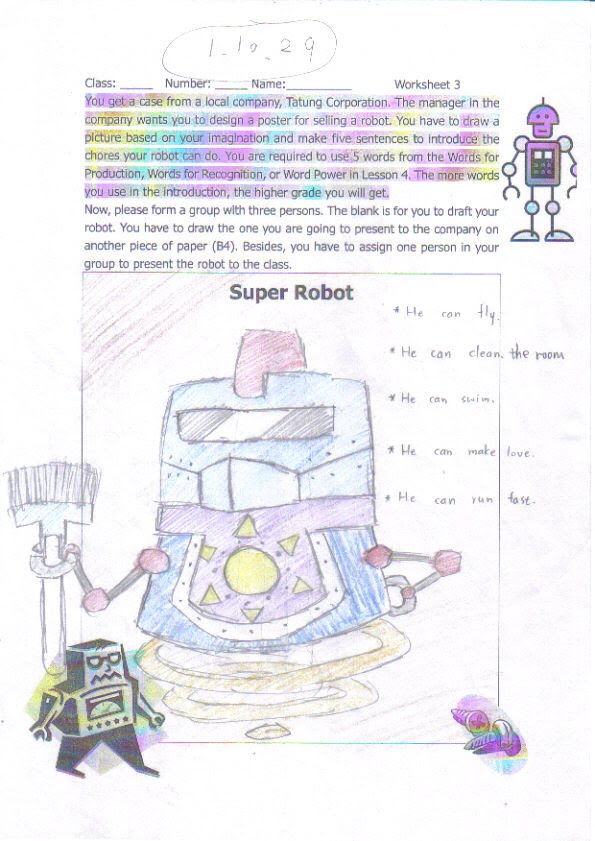 1-10-29
Class: _____ Number: _____ Name: __________ Worksheet 3
You get a case from a local company, Tatung Corporation. The manager in the
company wants you to design a poster for selling a robot. You have to draw a
picture based on your imagination and make five sentences to introduce the
chores your robot can do. You are required to use 5 words from the Words for
Production, Words for Recognition, or Word Power in Lesson 4. The more words
you use in the introduction, the higher grade you will get.
Now, please form a group with three persons. The blank is for you to draft your
robot. You have to draw the one you are going to present to the company on
another piece of paper (B4). Besides, you have to assign one person in your
group to present the robot to the class.
Super Robot
* He can fly.
* He can clean. the room
* He can swim.
* He can make love.
* He can run fast.